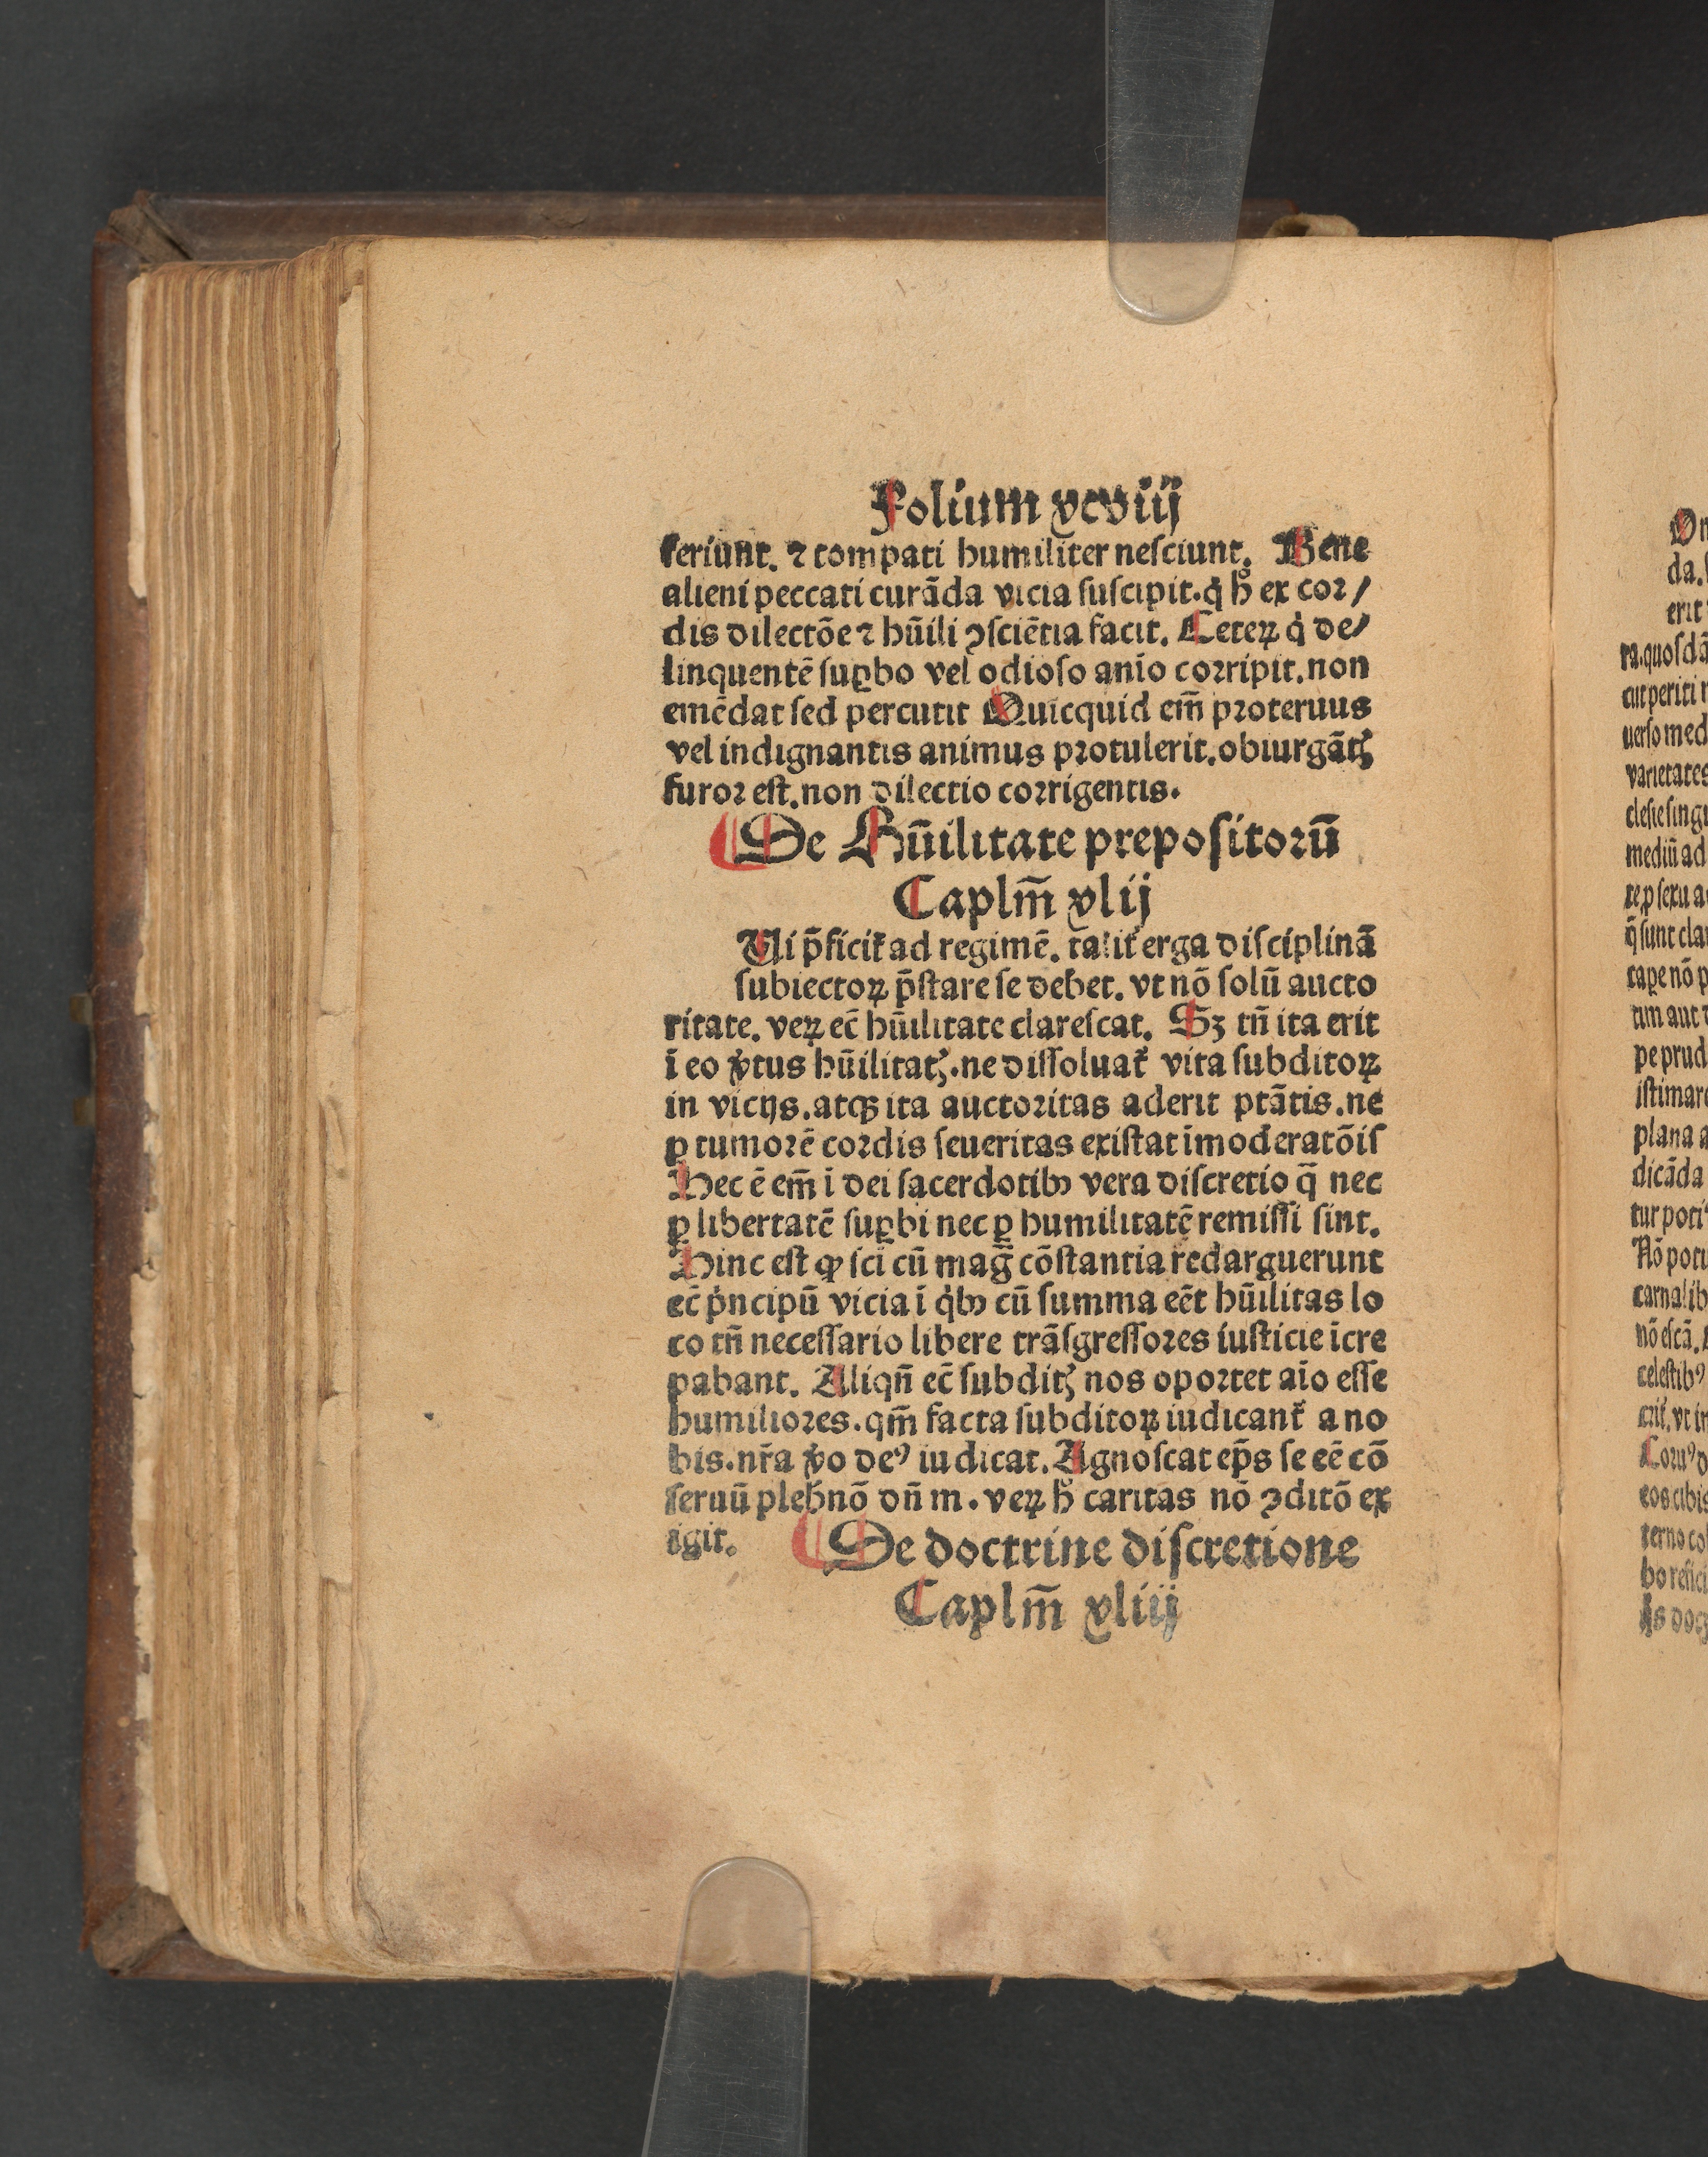 Folium xcviij
feriunt. ⁊ compati humiliter nesciunt. Bene
alieni peccati curãda vicia suscipit.q̇ h̊ ex cor/
dis dilectõe ⁊ hũili ꝯsciẽtia facit. Ceteꝝ q̇ de/
linquentẽ suꝑbo vel odioso anĩo corripit.non
emẽdat sed percutit Quicquid em̃ proteruus
vel indignantis animus protulerit.obiurgãtꝭ
furor est.non dilectio corrigentis.
De Hũilitate prepositorũ
Caplm̃ xlij
Ui p̃ficit᷑ ad regimẽ. talit᷑ erga disciplinã
subiectoꝝ p̃stare se debet. vt nõ solũ aucto
ritate. veꝝ ec̃ hũilitate clarescat. Sꝫ tñ ita erit
ĩ eo v̓tus hũilitatꝭ.ne dissoluat᷑ vita subditoꝝ
in vicijs.atqꝫ ita auctoritas aderit ptãtis.ne
ꝑ tumorẽ cordis seueritas existat ĩmoderatõis
Hec ẽ em̃ ĩ dei sacerdotibꝰ vera discretio q̃ nec
ꝑ libertatẽ suꝑbi nec ꝑ humilitatẽ remissi sint.
Hinc est ꝙ sci cũ mag̃ cõstantia redarguerunt
ec̃ pͥncipũ vicia ĩ qͥbꝰ cũ summa eẽt hũilitas lo
co tñ necessario libere trãsgressores iusticie ĩcre
pabant. Aliqñ ec̃ subditꝭ nos oportet aĩo esse
humiliores.qm̃ facta subditoꝝ iudicant᷑ a no
bis.nr̃a v̓o deꝰ iudicat. Agnoscat ep̃s se eẽ cõ
seruũ pleb̃ nõ dñm. veꝝ h̊ caritas nõ ꝯditõ ex
igit. De doctrine discretione
Caplm̃ xliij
On
da.
erit
ra.quosdã
cut periti
uerso med
varietates
clesie singu
mediũ ad
te.ꝓ sexu a
q̃ sunt cla
tape nõ p
tim aut
pe prud
istimare
plana a
dicãda
tur potiꝰ
Nõ poti
carnalib
nõ escã.
celestibꝰ
erit᷑.vt in
Coruꝰ d
eos cibis
terno co
bo refici